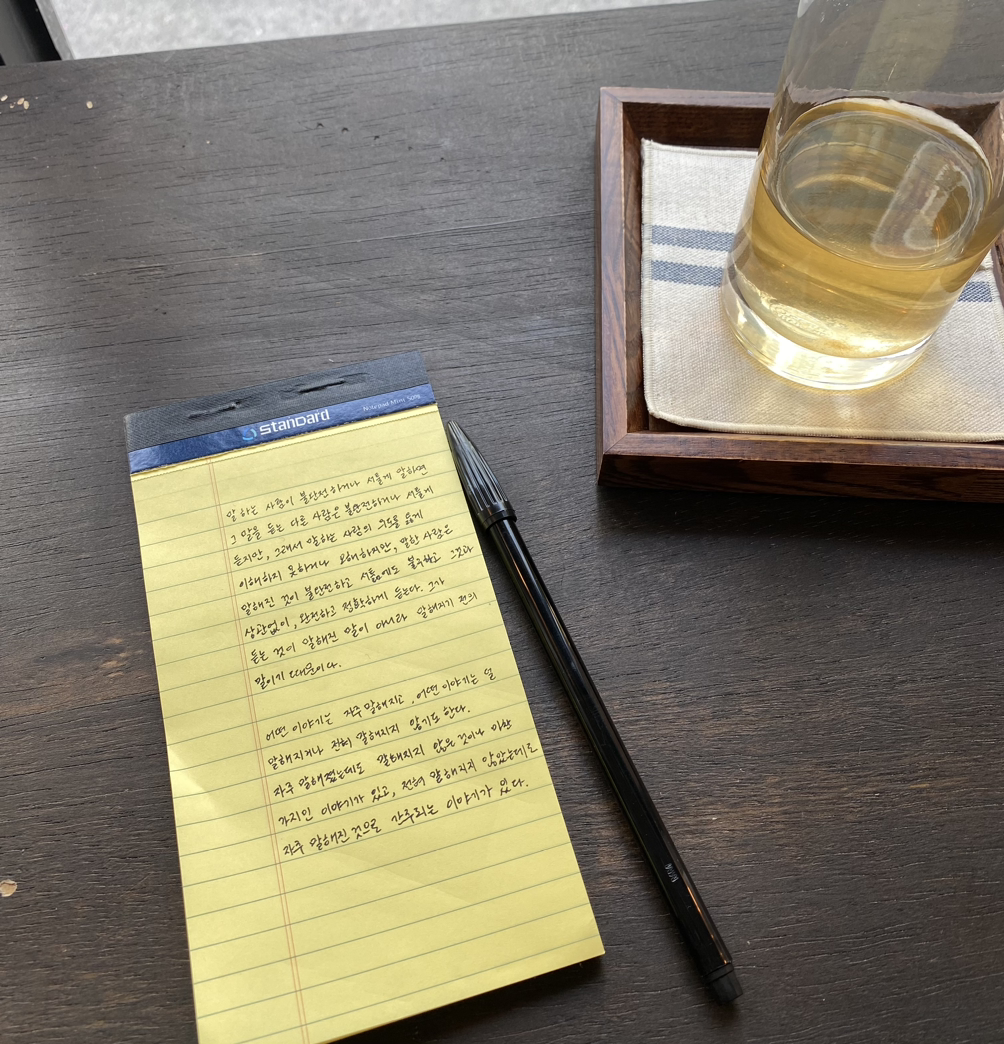 standard
Notepad Mini 50th
말하는 사람이 불완전하거나 서툴게 말하면
그 말을 듣는 다른 사람은 불완전하거나 서툴게
듣지만, 그래서 말하는 사람의 의도를 옳게
이해하지 못하거나 오해하지만, 말한 사람은
말해진 것이 불완전하고 서툶에도 불구하고 그것과
상관없이, 완전하고 정확하게 듣는다. 그가
듣는 것이 말해진 말이 아니라 말해지기 전의
말이기 때문이다.
어떤 이야기는 자주 말해지고, 어떤 이야기는 덜
말해지거나 전혀 말해지지 않기도 한다.
자주 말해졌는데도 말해지지 않은 것이나 마찬
가지인 이야기가 있고, 전혀 말해지지 않았는데도
자주 말해진 것으로 간주되는 이야기가 있다.